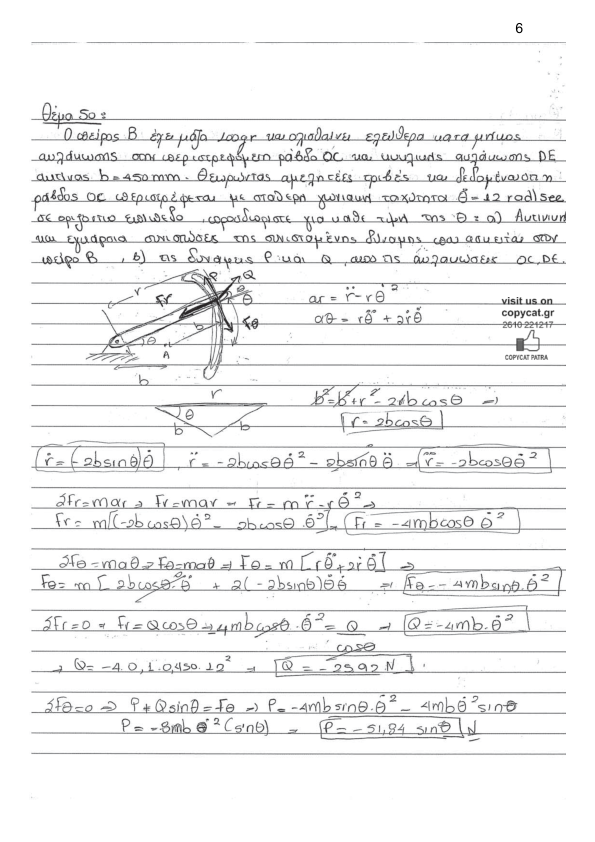 6
Θέμα 5ο:
Ο πείρος Β έχει μάζα 100gr και ολισθαίνει ελεύθερα κατα μήκος
αυλάκωσης στην περιστρεφόμενη ράβδο OC και κυκλικής αυλάκωσης DE
ακτίνας b=450mm. Θεωρώντας αμελητέες τριβές και δεδομένου ότι η
ράβδος OC περιστρέφεται με σταθερή γωνιακή ταχύτητα θ̈=12 rad/sec
σε οριζόντιο επίπεδο, προσδιορίστε για κάθε τιμή της θ: α) Ακτινική
και εγκάρσια συνιστώσες της συνισταμένης δύναμης που ασκείται στον
πείρο Β, b) τις δυνάμεις P και Q, από τις αυλακώσεις OC, DE.
P Q
r Fr θ θ
Fθ
O θ b
A
b
ar = r̈ - rθ̇²
αθ = rθ̈ + 2ṙθ̇
visit us on
copycat.gr
2610 221217
COPYCAT PATRA
r
θ
b b
b²=b²+r²-2rbcosθ ⇒
r=2bcosθ
ṙ=(-2bsinθ)θ̇, r̈=-2bcosθθ̇² - 2bsinθθ̈ ⇒ r̈=-2bcosθθ̇²
ΣFr=mar ⇒ Fr=mar ⇒ Fr=m r̈-rθ̇² ⇒
Fr=m[(-2bcosθ)θ̇² - 2bcosθ·θ̇²] ⇒ Fr=-4mbcosθθ̇²
ΣFθ=mαθ ⇒ Fθ=mαθ ⇒ Fθ=m[rθ̈+2ṙθ̇] ⇒
Fθ=m[2bcosθ·θ̈ + 2(-2bsinθ)θ̇θ̇ ⇒ Fθ=-4mbsinθ·θ̇²
ΣFr=0 ⇒ Fr=Qcosθ → -4mbcosθ·θ̇²/cosθ = Q → Q=-4mb·θ̇²
→ Q=-4.0,1.0,450.12² → Q=-25,92 N
ΣFθ=0 ⇒ P+Qsinθ=Fθ → P=-4mbsinθ·θ̇² - 4mbθ̇²sinθ
P=-8mbθ̇²(sinθ) → P=-51,84 sinθ N